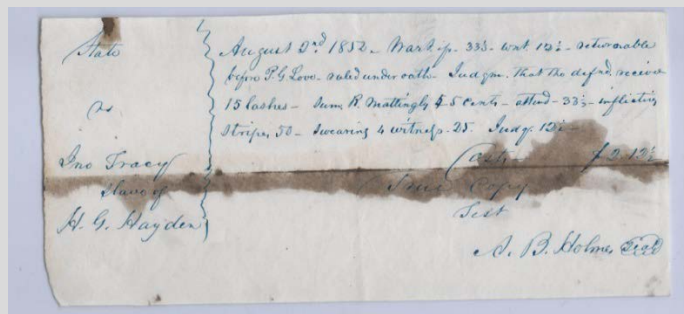 State
vs
Jno Tracy
slave of
H. G. Hayden
August 2nd 1852 - Wart if - 33⅓ - wit 12½ - returnable
before P. G. Love - ruled under oath - Judgm. that the defnd. receive
15 lashes - sum R. Mattingly $ 5 cents - attend - 33⅓ - inflicting
stripes 50 - swearing 4 witness - 25. Judg. 12½ -
Costs - $ 2.12½
True Copy
Test
A. B. Holmes